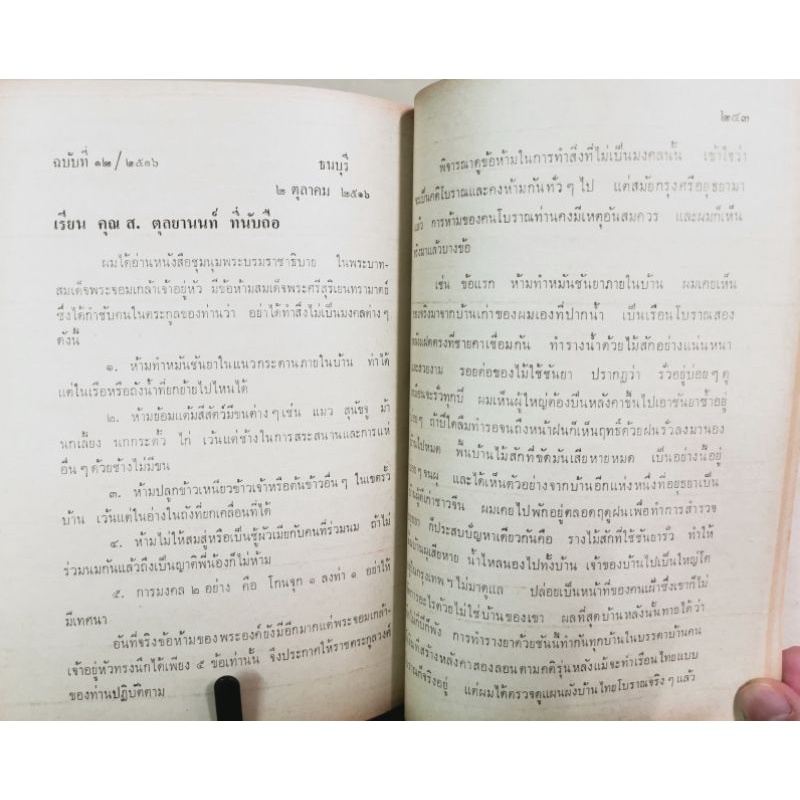 ฉบับที่ ๑๒/๒๕๑๖
ธนบุรี
๒ ตุลาคม ๒๕๑๖
เรียน คุณ ส. ตุลยานนท์ ที่นับถือ
ผมได้อ่านหนังสือชุมนุมพระบรมราชาธิบาย ในพระบาท-
สมเด็จพระจอมเกล้าเจ้าอยู่หัว มีข้อห้ามสมเด็จพระศรีสุริเยนทรามาตย์
ซึ่งได้กำชับคนในตระกูลของท่านว่า อย่าได้ทำสิ่งไม่เป็นมงคลต่าง ๆ
ดังนี้
๑. ห้ามทำหมันชันยาในแนวกระดานภายในบ้าน ทำได้
แต่ในเรือหรือถังน้ำที่ยกย้ายไปไหนได้
๒. ห้ามย้อมแต้มสีสัตว์มีขนต่าง ๆ เช่น แมว สุนัขจู ม้า
นกเลี้ยง นกกระตั้ว ไก่ เว้นแต่ช้างในการสระสนานและการแห่
อื่น ๆ ด้วยช้างไม่มีขน
๓. ห้ามปลูกข้าวเหนียวข้าวเจ้าหรือต้นข้าวอื่น ๆ ในเขตรั้ว
บ้าน เว้นแต่ในอ่างในถังที่ยกเคลื่อนที่ได้
๔. ห้ามไม่ให้สมสู่หรือเป็นชู้ผัวเมียกับคนที่ร่วมนม ถ้าไม่
ร่วมนมกันแล้วถึงเป็นญาติพี่น้องก็ไม่ห้าม
๕. การมงคล ๒ อย่าง คือ โกนจุก ๑ ลงท่า ๑ อย่าให้
มีเทศนา
อันที่จริงข้อห้ามของพระองค์ยังมีอีกมากแต่พระจอมเกล้า-
เจ้าอยู่หัวทรงนึกได้เพียง ๕ ข้อเท่านั้น จึงประกาศให้ราชตระกูลวงศ์
ของท่านปฏิบัติตาม
๒๕๓
พิจารณาดูข้อห้ามในการทำสิ่งที่ไม่เป็นมงคลนั้น เข้าใจว่า
จะเป็นคติโบราณและคงห้ามกันทั่ว ๆ ไป แต่สมัยกรุงศรีอยุธยามา
แล้ว การห้ามของคนโบราณท่านคงมีเหตุอันสมควร และผมก็เห็น
จริงมาแล้วบางข้อ
เช่น ข้อแรก ห้ามทำหมันชันยาภายในบ้าน ผมเคยเห็น
ของจริงมาจากบ้านเก่าของผมเองที่ปากน้ำ เป็นเรือนโบราณสอง
แฝดตรงที่ชายคาเชื่อมกัน ทำรางน้ำด้วยไม้สักอย่างแน่นหนา
และสวยงาม รอยต่อของไม้ใช้ชันยา ปรากฏว่า รั่วอยู่บ่อย ๆ ดู
เหมือนจะรั่วทุกปี ผมเห็นผู้ใหญ่ต้องปีนหลังคาขึ้นไปเอาชันยาซ้ำอยู่
ๆ ถ้าปีใดลืมทำรอจนถึงหน้าฝนก็เห็นฤทธิ์ด้วยฝนรั่วลงมานอง
บ้านไปหมด พื้นบ้านไม้สักที่ขัดมันเสียหายหมด เป็นอย่างนี้อยู่
ๆ จนผุ และได้เห็นตัวอย่างจากบ้านอีกแห่งหนึ่งที่อยุธยาเป็น
บ้านผู้เก่าชาวจีน ผมเคยไปพักอยู่ตลอดฤดูฝนเพื่อทำการสำรวจ
ก็ประสบปัญหาเดียวกันคือ รางไม้สักที่ใช้ชันยารั่ว ทำให้
บ้านผุเสียหาย น้ำไหลนองไปทั้งบ้าน เจ้าของบ้านไปเป็นใหญ่โต
อยู่ในกรุงเทพ ฯ ไม่มาดูแล ปล่อยเป็นหน้าที่ของคนเฝ้าซึ่งเขาก็ไม่
อะไรด้วยไม่ใช่บ้านของเขา ผลที่สุดบ้านหลังนั้นทายได้ว่า
ไม่กี่ปีก็พัง การทำรางยาด้วยชันนี้ทำกันทุกบ้านในบรรดาบ้านคน
ที่สร้างหลังคาสองลอนตามคติรุ่นหลังแม้จะทำเรือนไทยแบบ
ก็จริงอยู่ แต่ผมได้ตรวจดูแผนผังบ้านไทยโบราณจริง ๆ แล้ว